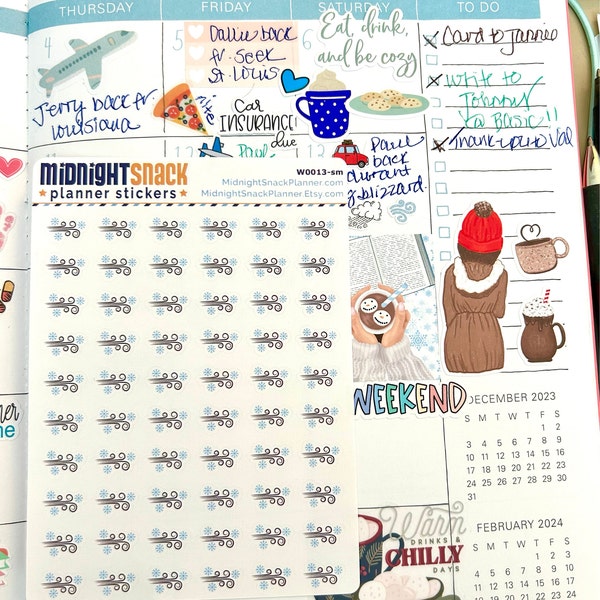 THURSDAY
FRIDAY
SATURDAY
TO DO
4
5
Dallie back
fr. Seek
St. Louis
Eat, drink,
and be cozy
Card to Jannie
Write to
Johnny
@ Basic!!
Thank-you to Val
Jerry back fr.
Louisiana
CAR
INSURANCE!
due
12
Paul
back
blizzard.
MIDNIGHTSNACK
planner stickers
W0013-sm
MidnightSnackPlanner.com
MidnightSnackPlanner.Etsy.com
WEEKEND
DECEMBER 2023
S M T W T F S
1 2
3 4 5 6 7 8 9
10 11 12 13 14 15 16
17 18 19 20 21 22 23
24 25 26 27 28 29 30
31
Warm
DRINKS &
CHILLY
DAYS
FEBRUARY 2024
S M T W T F S
1 2 3
4 5 6 7 8 9 10